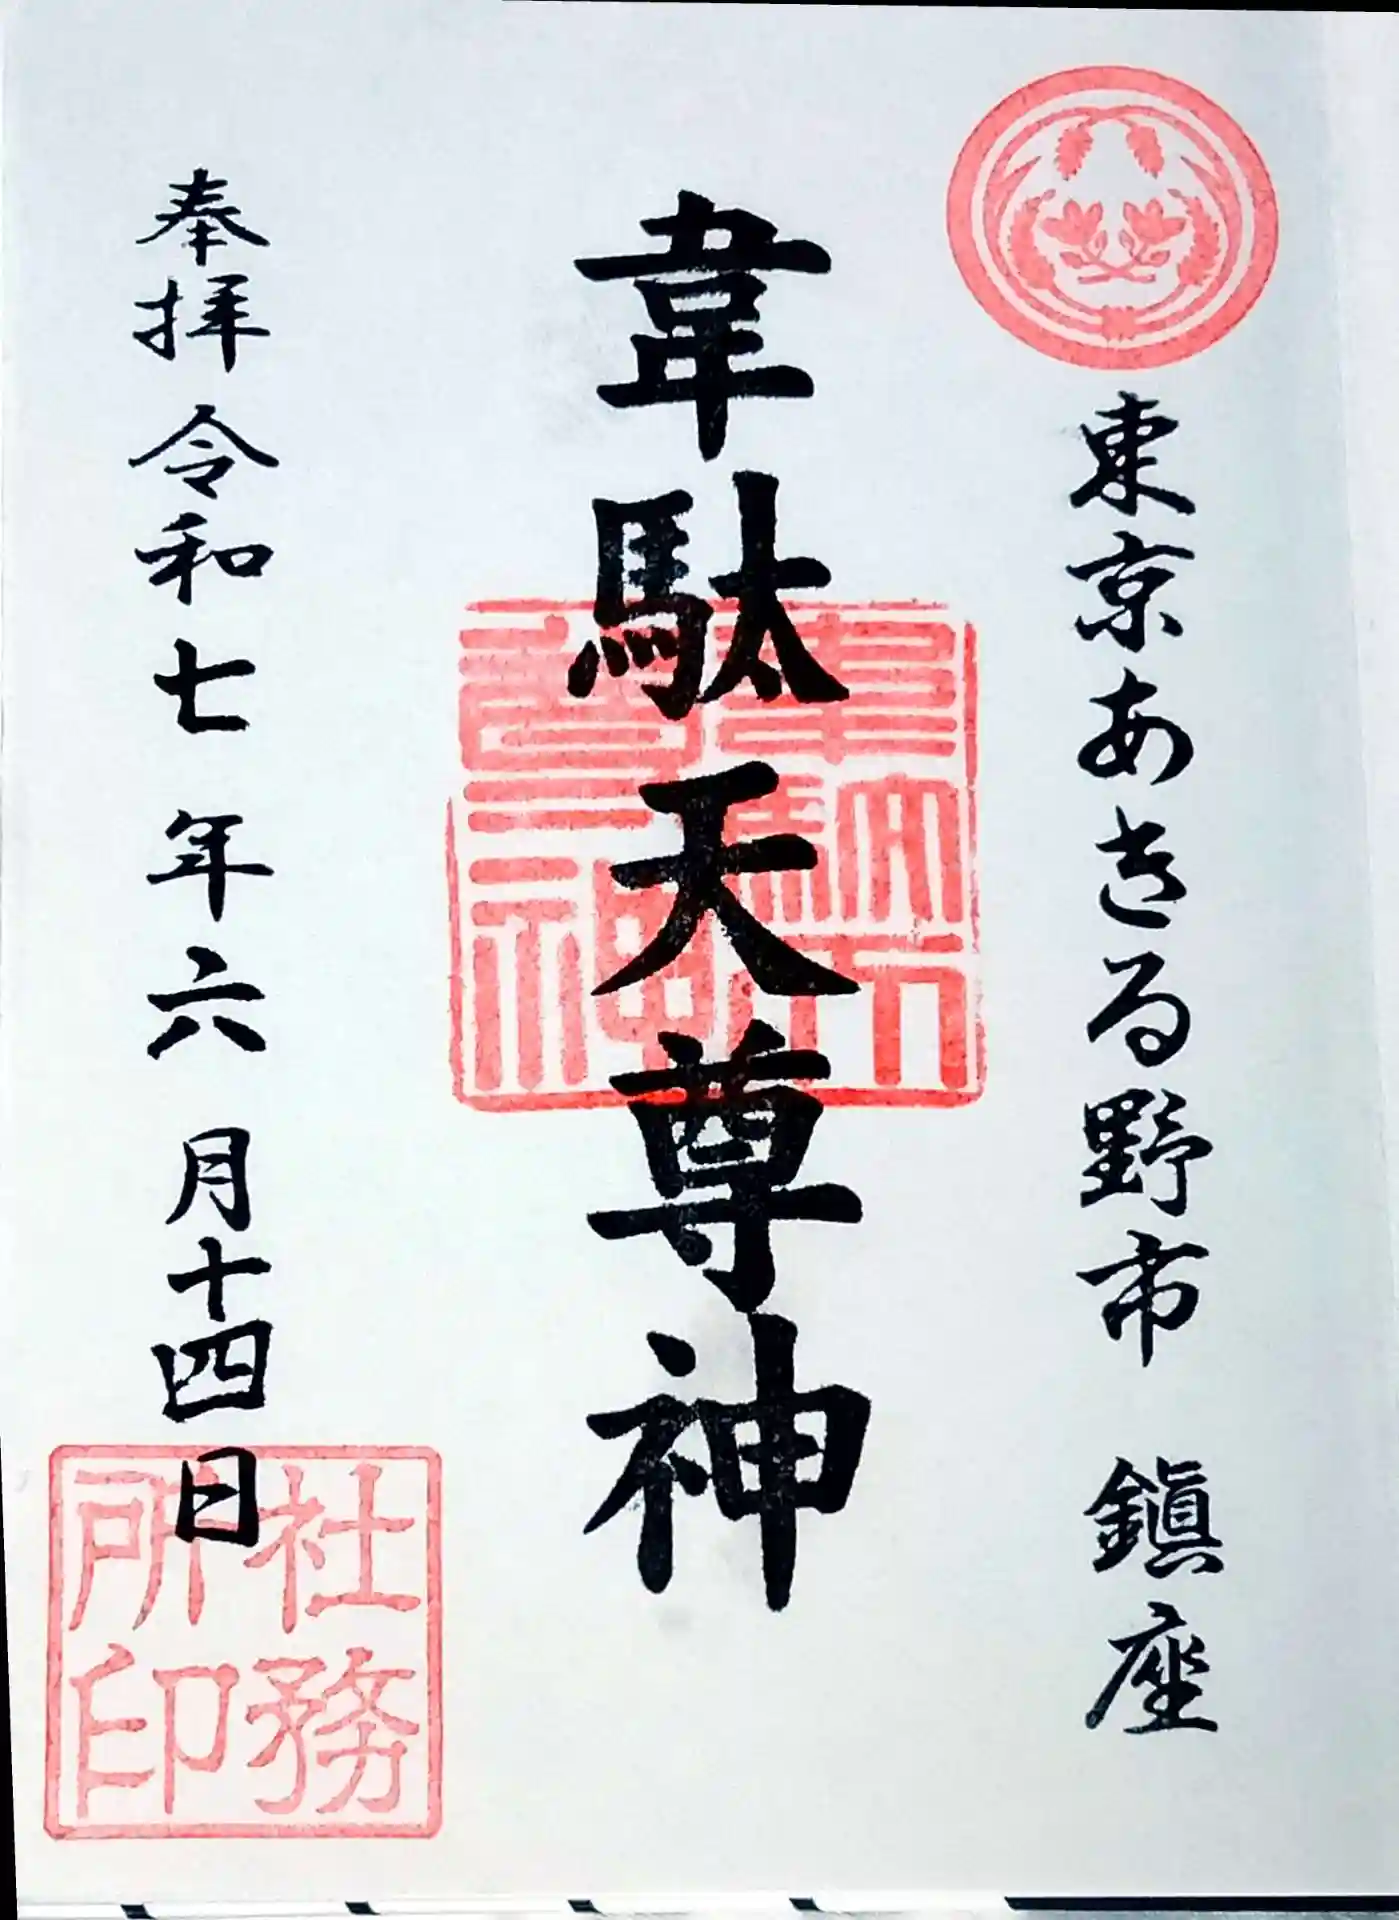 東京あきる野市 鎭座
韋駄天尊神
韋駄天尊神
奉拝 令和七年六月十四日
社務所印